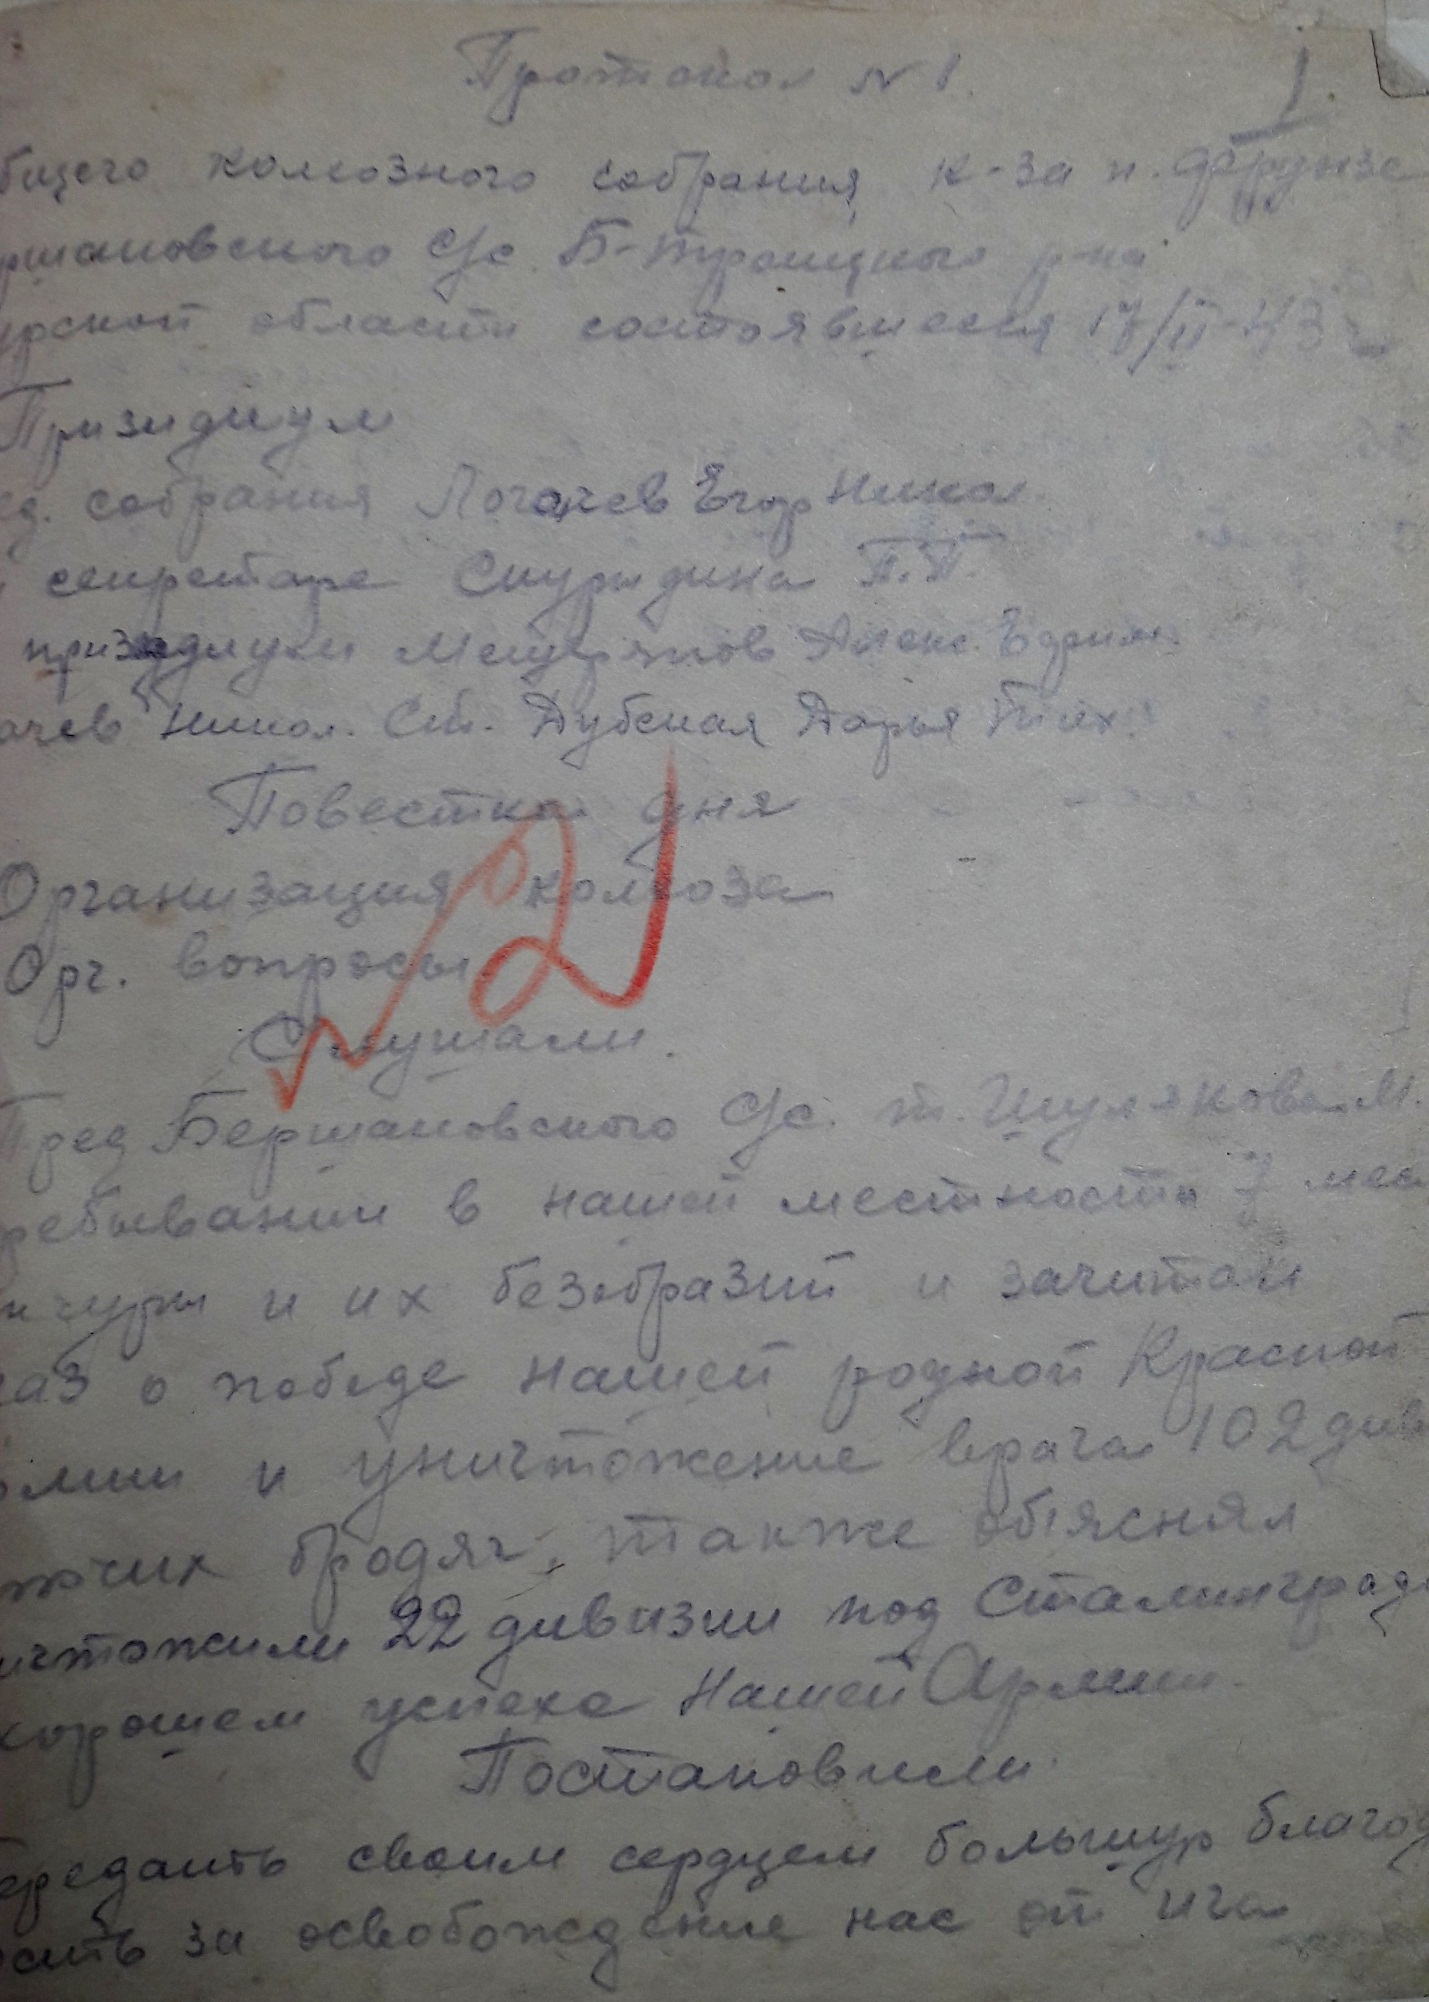 Протокол №1.
1.
бщего колхозного собрания к-за и. Фрунзе
ршаковского С/с. Б-Троицкого р-на
урской области состоявшееся 17/II-43 г.
Призидиум
ед. собрания Логачев Егор Никол.
секретаре Скурядина П.П.
призидиуми Мещеряков Алекс. Ефрим.
ачев Никол. Ст. Дубская Дарья Тих.
Повестка дня
Организация колхоза
Орг. вопросы
21
Слушали.
Пред Бершаковского С/с. т. Шуляková М.
ребывании в нашей местности 7 мес
нчуры и их безобразий и зачитал
каз о победе нашей родной Красной
рмии и уничтожение врага 102 див
бродяг, также об'яснял
ичтожили 22 дивизии под Сталинград
хорошем успехе Нашей Армии.
Постановили.
ередать своим сердцем большую благод
ость за освобождение нас от ига